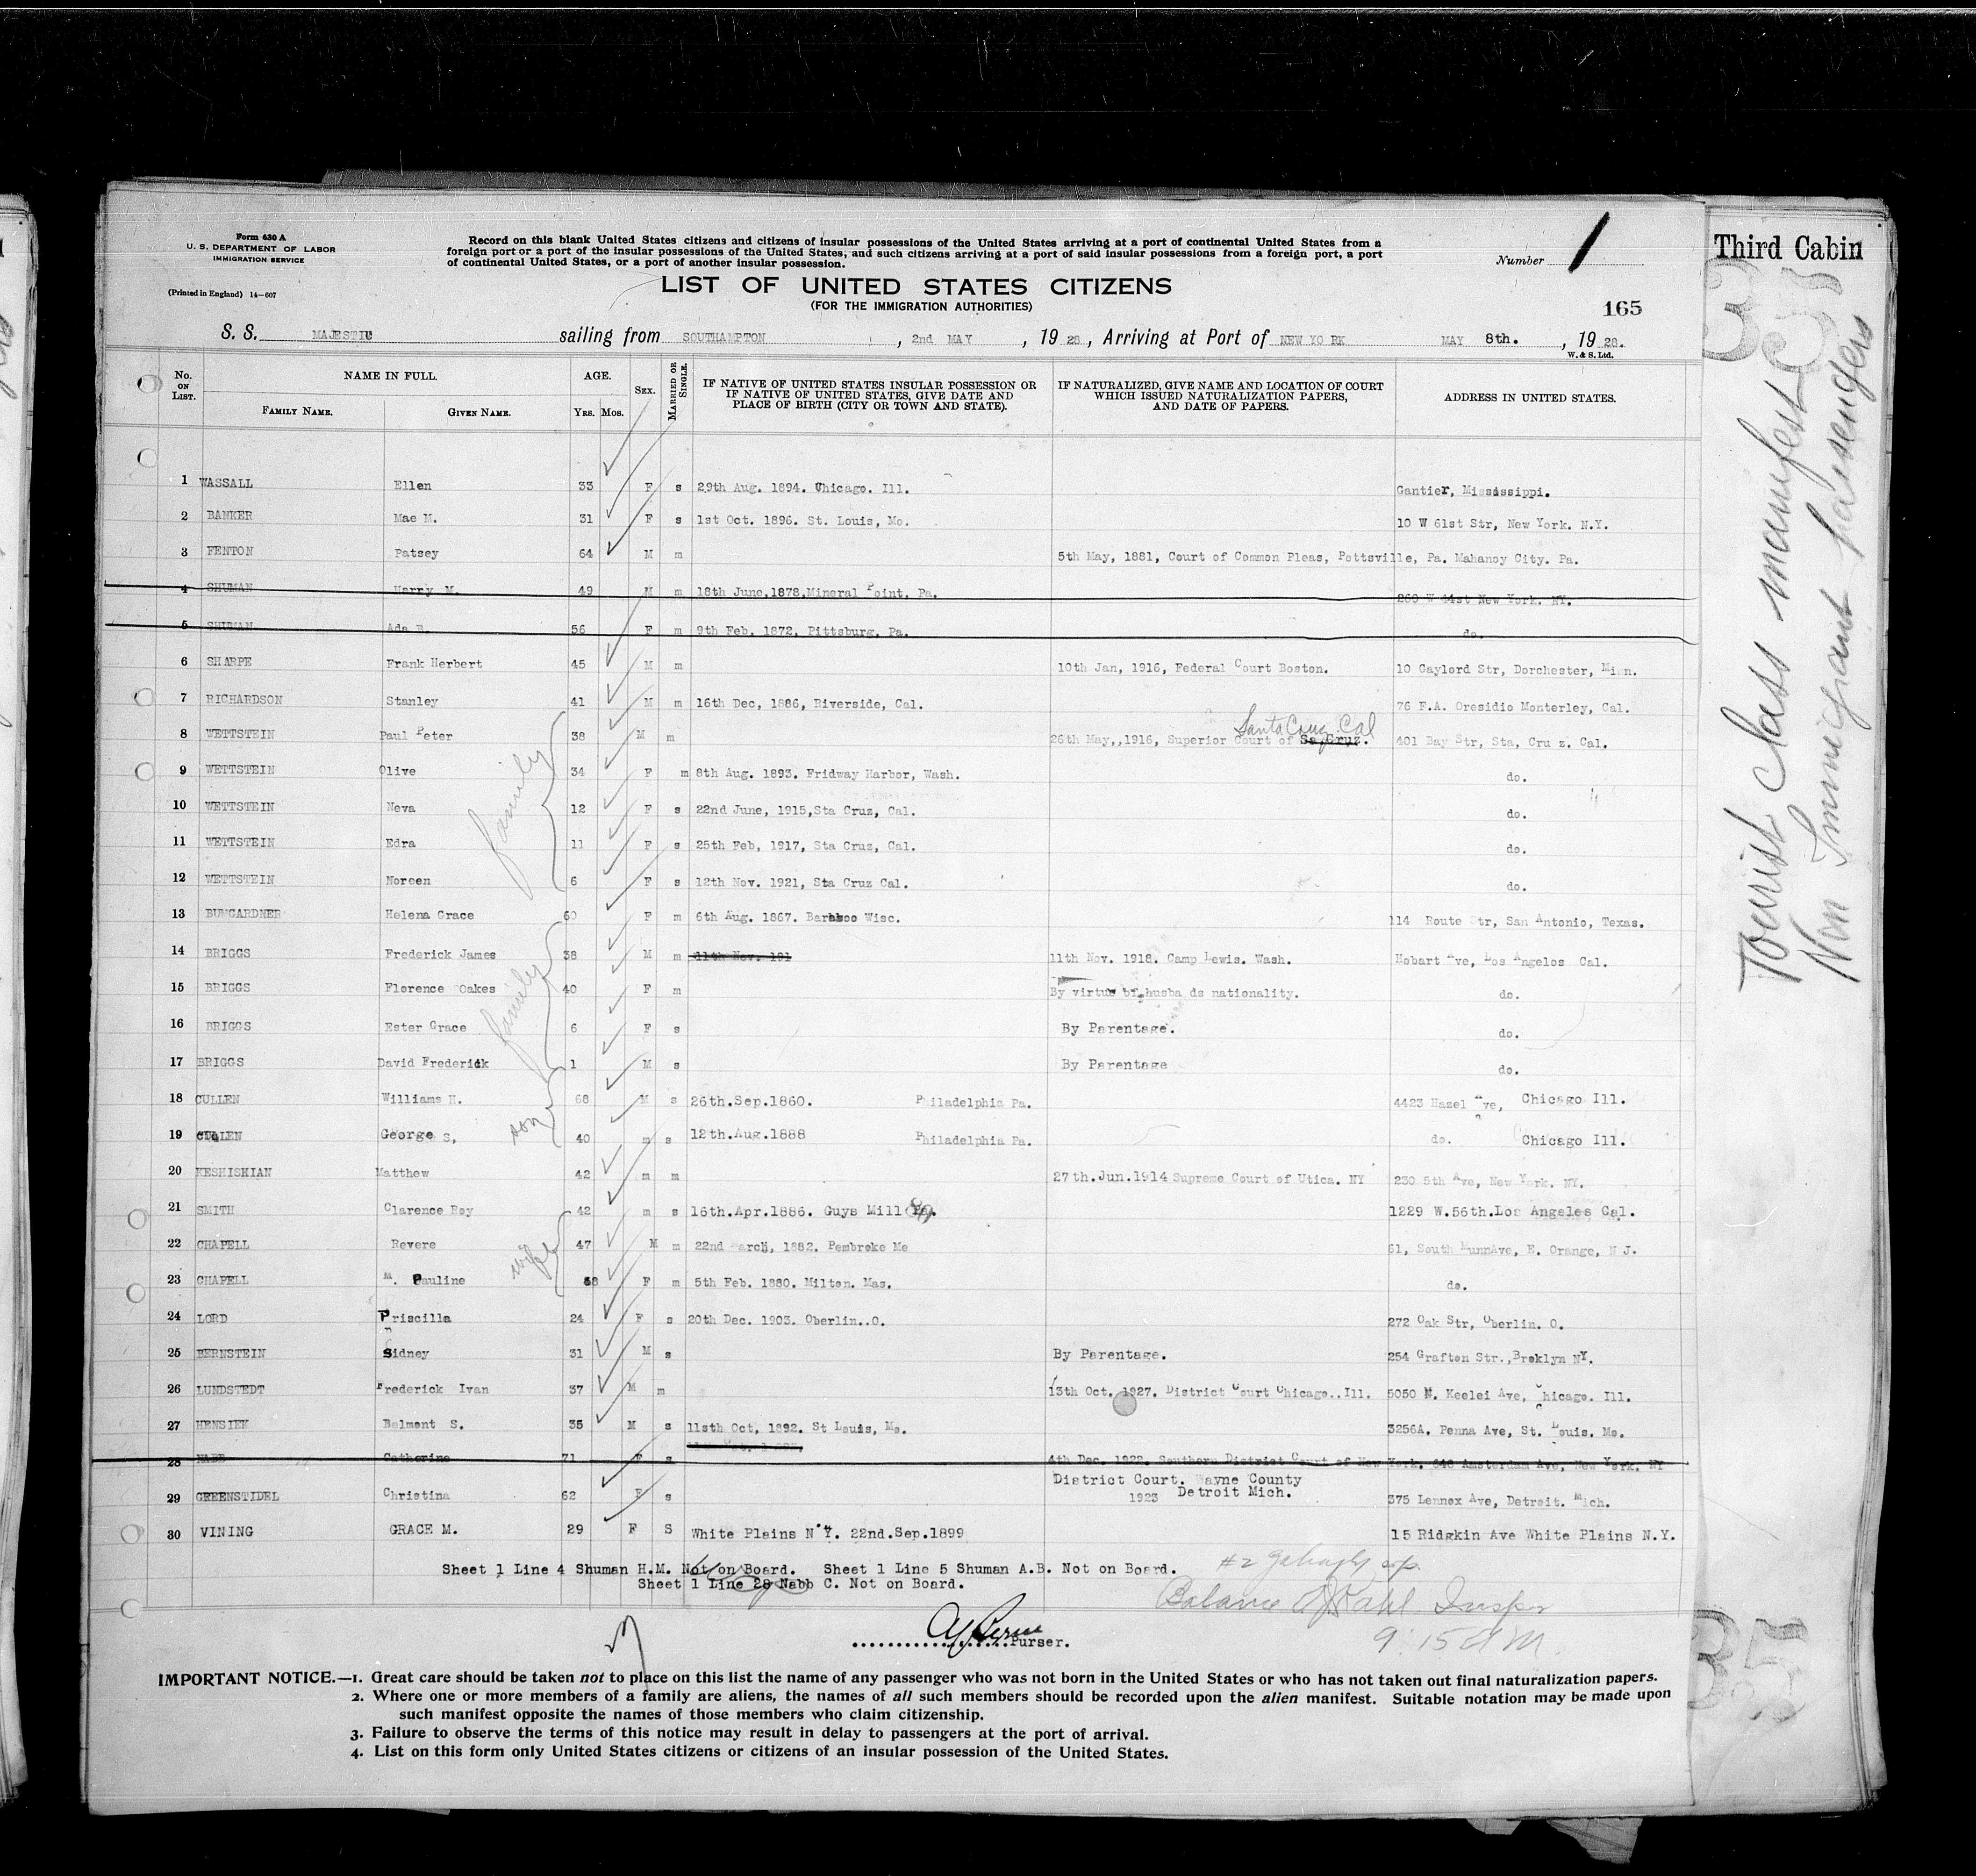 Form 630 A
U. S. DEPARTMENT OF LABOR
IMMIGRATION SERVICE
(Printed in England) 14—607
Record on this blank United States citizens and citizens of insular possessions of the United States arriving at a port of continental United States from a
foreign port or a port of the insular possessions of the United States, and such citizens arriving at a port of said insular possessions from a foreign port, a port
of continental United States, or a port of another insular possession.
Number 1
LIST OF UNITED STATES CITIZENS
(FOR THE IMMIGRATION AUTHORITIES)
165
S. S. MAJESTIC sailing from SOUTHAMPTON, 2nd MAY, 1928, Arriving at Port of NEW YO RK MAY 8th., 1928.
W. & S. Ltd.
No. ON LIST. NAME IN FULL. FAMILY NAME. GIVEN NAME. AGE. YRS. MOS. SEX. MARRIED OR SINGLE. IF NATIVE OF UNITED STATES INSULAR POSSESSION OR IF NATIVE OF UNITED STATES, GIVE DATE AND PLACE OF BIRTH (CITY OR TOWN AND STATE). IF NATURALIZED, GIVE NAME AND LOCATION OF COURT WHICH ISSUED NATURALIZATION PAPERS, AND DATE OF PAPERS. ADDRESS IN UNITED STATES.
1 WASSALL Ellen 33 F s 29th Aug. 1894. Chicago. Ill. Gantier, Mississippi.
2 BANKER Mae M. 31 F s 1st Oct. 1896. St. Louis, Mo. 10 W 61st Str, New York. N.Y.
3 FENTON Patsey 64 M m 5th May, 1881, Court of Common Pleas, Pottsville, Pa. Mahanoy City. Pa.
4 SHUMAN Harry M. 49 M m 18th June,1878.Mineral Point. Pa. 260 W 44st New York. NY.
5 SHUMAN Ada B. 56 F m 9th Feb. 1872. Pittsburg. Pa. do.
6 SHARPE Frank Herbert 45 M m 10th Jan, 1916, Federal Court Boston. 10 Gaylord Str, Dorchester, Minn.
7 RICHARDSON Stanley 41 M m 16th Dec, 1886, Riverside, Cal. 76 F.A. Oresidio Monterley, Cal.
8 WETTSTEIN Paul Peter 38 M m 26th May,,1916, Superior Court of Sa Cruz. Santa Cruz. Cal 401 Bay Str, Sta, Cru z. Cal.
9 WETTSTEIN Olive 34 F m 8th Aug. 1893. Fridway Harbor, Wash. do.
10 WETTSTEIN Neva 12 F s 22nd June, 1915,Sta Cruz, Cal. do.
11 WETTSTEIN Edra 11 F s 25th Feb, 1917, Sta Cruz, Cal. do.
12 WETTSTEIN Noreen 6 F s 12th Nov. 1921, Sta Cruz Cal. do.
family
13 BUMGARDNER Helena Grace 60 F m 6th Aug. 1867. Baraboo Wisc. 114 Route Str, San Antonio, Texas.
14 BRIGGS Frederick James 38 M m 11th Nov. 191 11th Nov. 1918. Camp Lewis. Wash. Hobart Ave, Los Angelos Cal.
15 BRIGGS Florence Oakes 40 F m By virtue of husba ds nationality. do.
16 BRIGGS Ester Grace 6 F s By Parentage. do.
17 BRIGGS David Frederick 1 M s By Parentage do.
family
18 CULLEN Williams H. 68 M s 26th.Sep.1860. Philadelphia Pa. 4423 Hazel Ave, Chicago Ill.
19 CULLEN George S, 40 m s 12th.Aug.1888 Philadelphia Pa. do. Chicago Ill.
son
20 KESHISHIAN Matthew 42 m m 27th.Jun.1914 Supreme Court of Utica. NY 230 5th Ave, New York. NY.
21 SMITH Clarence Roy 42 m s 16th.Apr.1886. Guys Mill Pa. 1229 W.56th.Los Angeles Cal.
22 CHAPELL Revere 47 M m 22nd March, 1882. Pembroke Me 61, South MunnAve, E. Orange, N J.
23 CHAPELL M. Pauline 48 F m 5th Feb. 1880. Milton. Mas. do.
wife
24 LORD Priscilla 24 F s 20th Dec. 1903. Oberlin..O. 272 Oak Str, Oberlin. O.
25 BERNSTEIN Sidney 31 M s By Parentage. 254 Grafton Str.,Broklyn NY.
26 LUNDSTEDT Frederick Ivan 37 M m 13th Oct. 1927. District Court Chicago..Ill. 5050 N. Keelei Ave, Chicago. Ill.
27 HENSIEK Belmont S. 35 M s 11sth Oct, 1892. St Louis, Mo. 3256A. Penna Ave, St. Louis. Mo.
28 NABB Catherine 71 F s 4th Dec. 1922. Southern District Court of New York. 640 Amsterdam Ave, New York. NY
29 GREENSTIDEL Christina 62 F s District Court. Wayne County 1923 Detroit Mich. 375 Lennox Ave, Detroit. Mich.
30 VINING GRACE M. 29 F S White Plains N.Y. 22nd.Sep.1899 15 Ridgkin Ave White Plains N.Y.
Sheet 1 Line 4 Shuman H.M. Not on Board. Sheet 1 Line 5 Shuman A.B. Not on Board.
Sheet 1 Line 28 Nabb C. Not on Board.
Balance
9:15 AM
Purser.
IMPORTANT NOTICE.—1. Great care should be taken not to place on this list the name of any passenger who was not born in the United States or who has not taken out final naturalization papers.
2. Where one or more members of a family are aliens, the names of all such members should be recorded upon the alien manifest. Suitable notation may be made upon
such manifest opposite the names of those members who claim citizenship.
3. Failure to observe the terms of this notice may result in delay to passengers at the port of arrival.
4. List on this form only United States citizens or citizens of an insular possession of the United States.
Third Cabin
Tourist Class manifest
Non Immigrant passengers